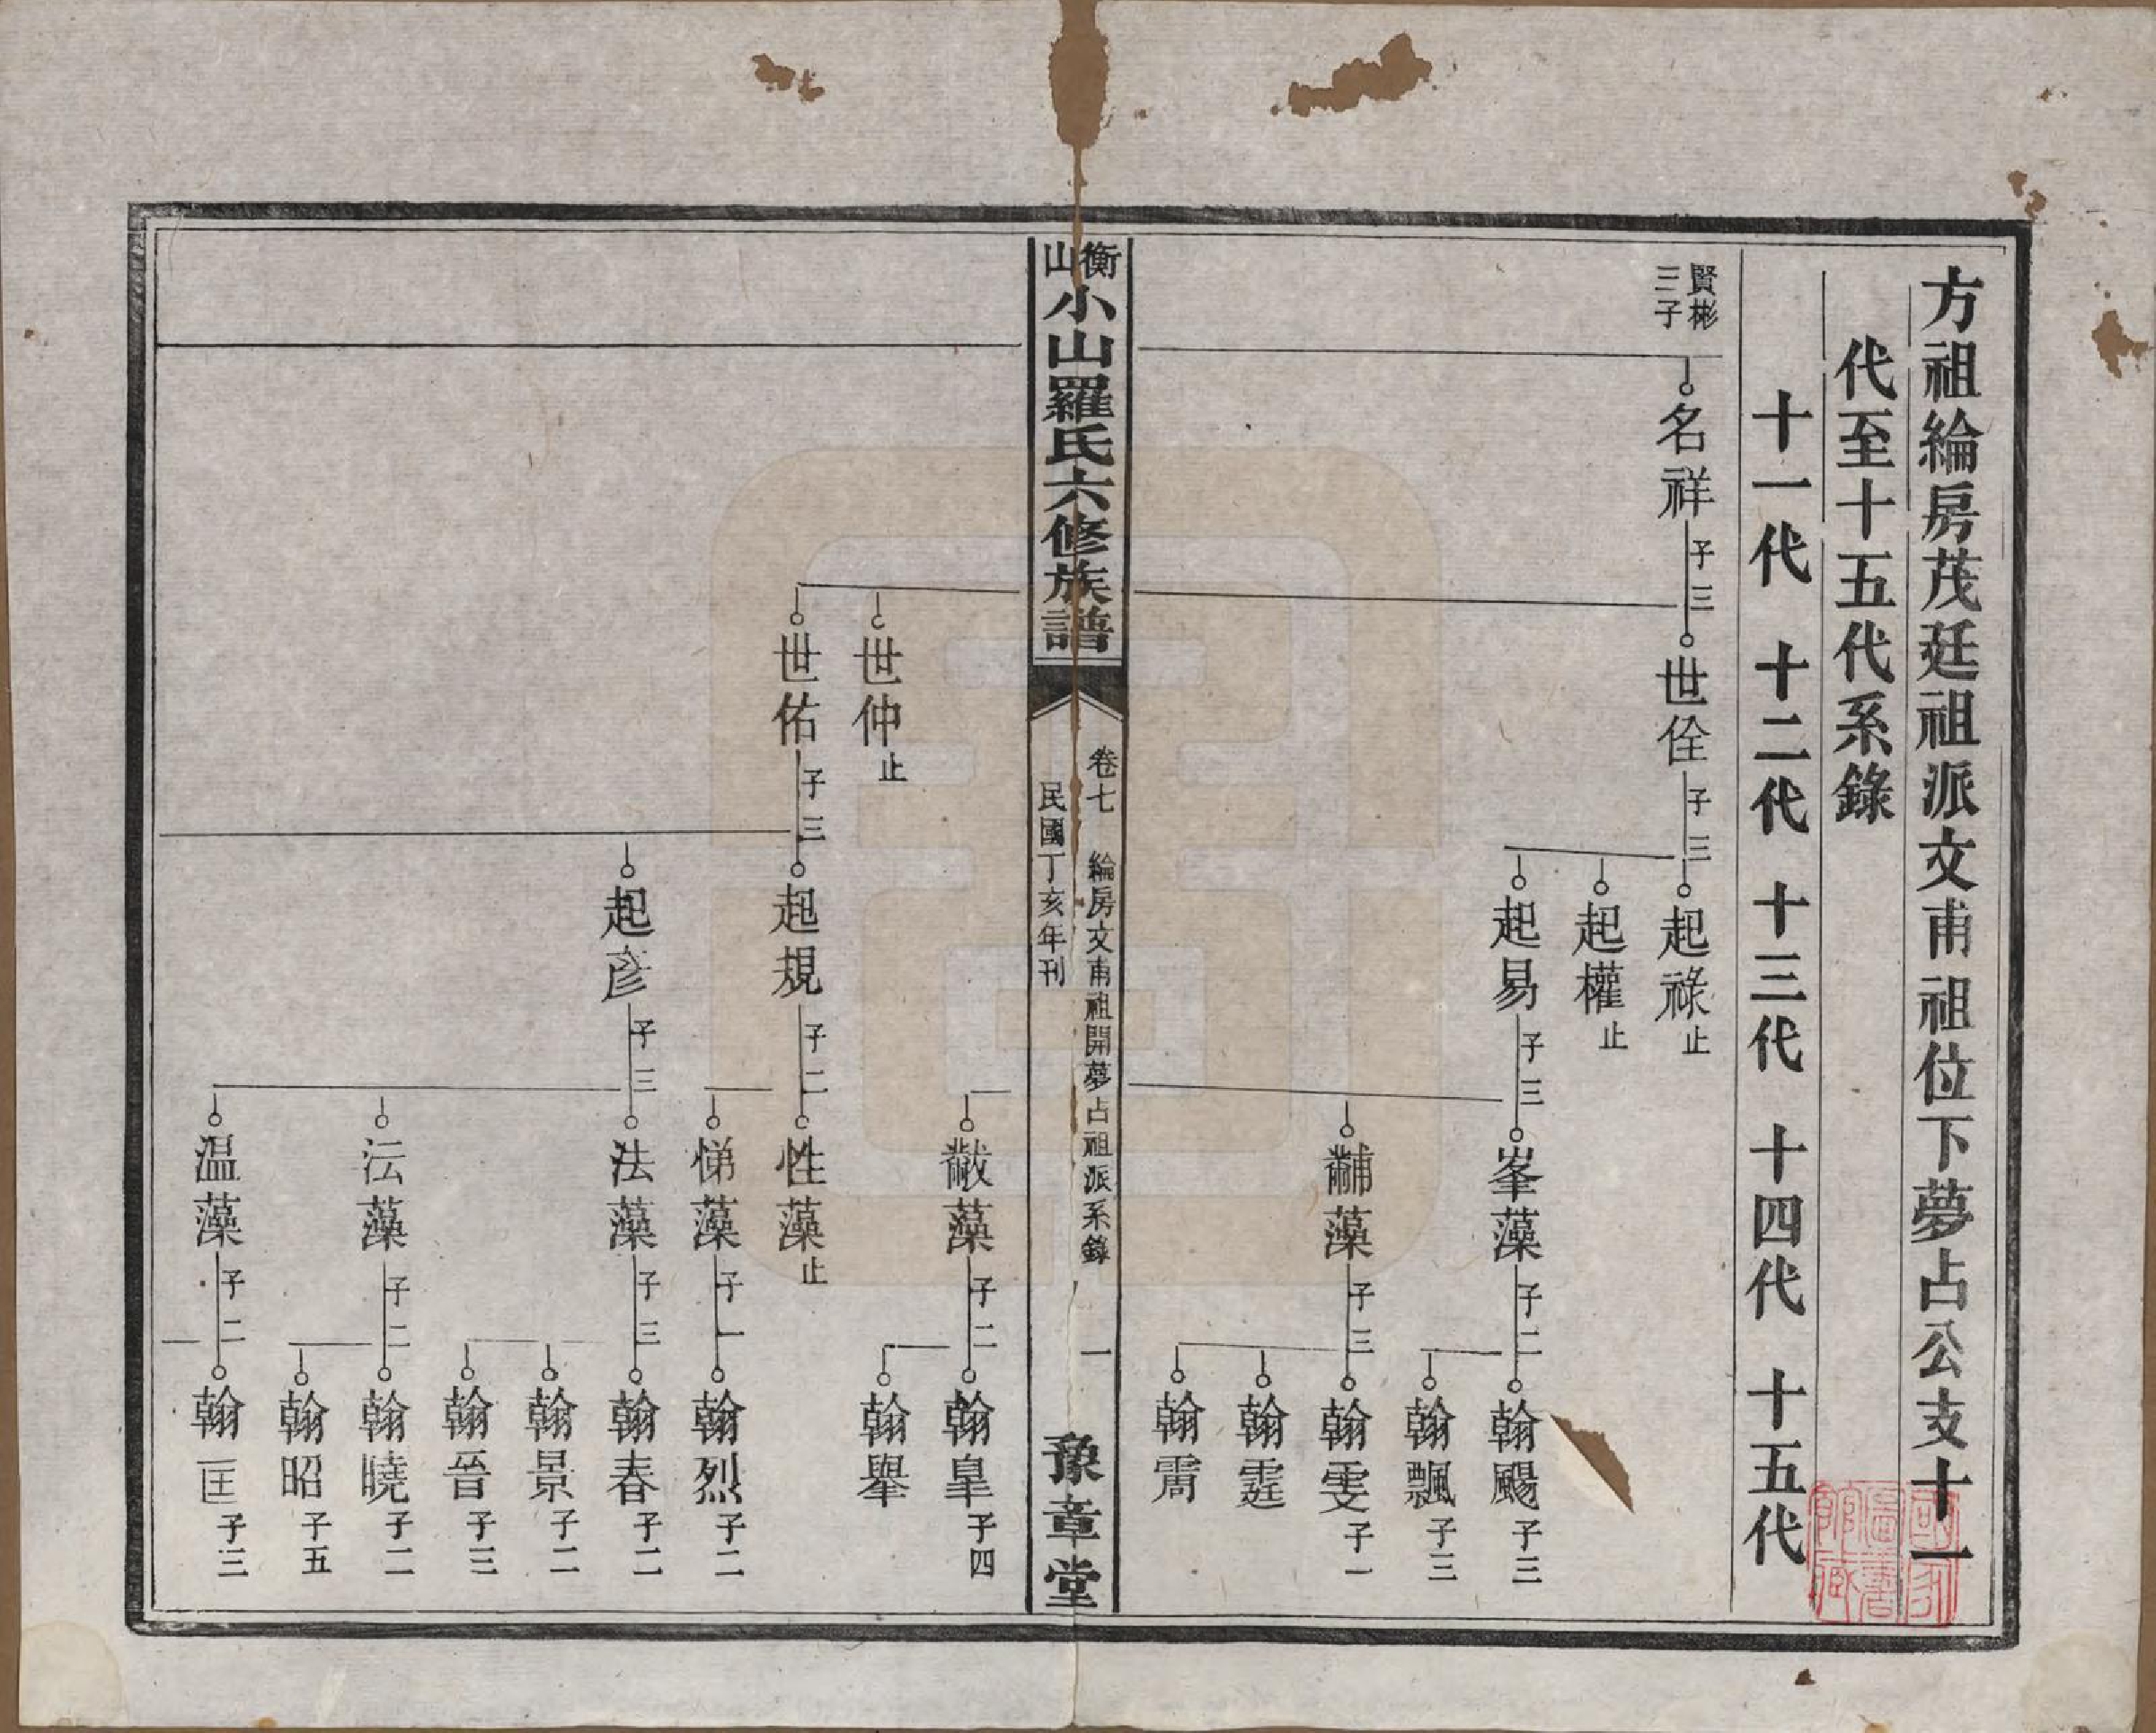 方祖綸房茂廷祖派文甫祖位下夢占公支十一
代至十五代系錄
十一代　十二代　十三代　十四代　十五代
賢彬
三子
名祥 子三
世佺 子三
起祿 止
起權 止
起易 子三
峯藻 子二
翰颺 子三
翰飄 子三
黼藻 子三
翰雯 子一
翰霆
翰霌
衡山小山羅氏六修族譜
卷七　綸房文甫祖開夢占祖派系錄　一
民國丁亥年刊
豫章堂
黻藻 子二
翰臯 子四
翰舉
世仲 止
世佑 子三
起規 子二
性藻 止
悌藻 子一
翰烈 子二
起彥 子三
法藻 子三
翰春 子二
翰景 子二
翰晉 子三
沄藻 子二
翰曉 子二
翰昭 子五
温藻 子二
翰匡 子三